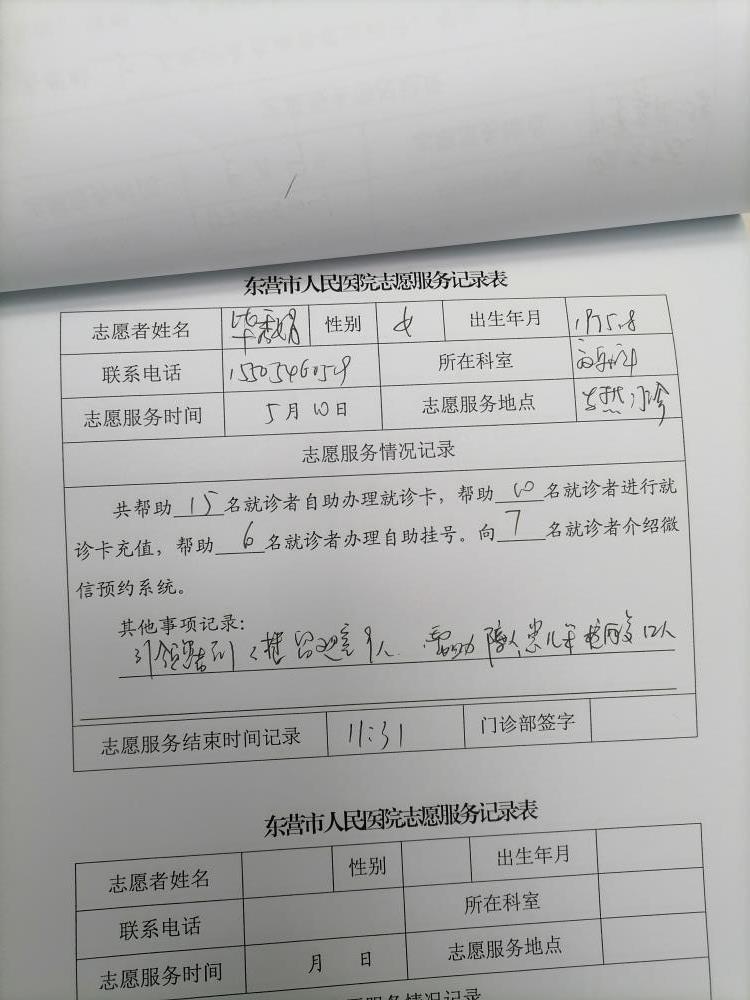 东营市人民医院志愿服务记录表
志愿者姓名 性别 女 出生年月 1975.8
联系电话 15505460549 所在科室
志愿服务时间 5月10日 志愿服务地点 发热门诊
志愿服务情况记录
共帮助15名就诊者自助办理就诊卡，帮助10名就诊者进行就
诊卡充值，帮助6名就诊者办理自助挂号。向7名就诊者介绍微
信预约系统。
其他事项记录：
引领患儿 楼留观室 人 帮助 患儿 12人
志愿服务结束时间记录 11:31 门诊部签字
东营市人民医院志愿服务记录表
志愿者姓名 性别 出生年月
联系电话 所在科室
志愿服务时间 月 日 志愿服务地点
志愿服务情况记录